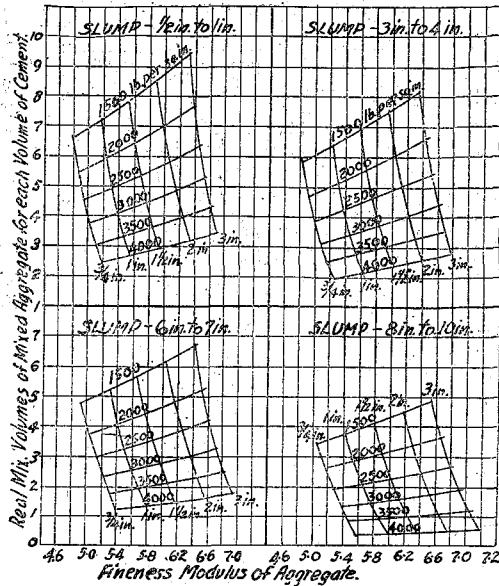 Real Mix, Volumes of Mixed Aggregate for each Volume of Cement.
SLUMP - 1/2 in. to 1 in.
10
9
8
7
6
5
4
3
2
1
1500 lb. per sq. in.
2000
2500
3000
3500
4000
3/4 in. 1 in. 1 1/2 in. 2 in. 3 in.
SLUMP - 3 in. to 4 in.
1500 lb. per sq. in.
2000
2500
3000
3500
4000
3/4 in. 1 in. 1 1/2 in. 2 in. 3 in.
SLUMP - 6 in. to 7 in.
7
6
5
4
3
2
1
0
1500
2000
2500
3000
3500
4000
3/4 in. 1 in. 1 1/2 in. 2 in. 3 in.
SLUMP - 8 in. to 10 in.
3/4 in. 1 in. 1 1/2 in. 2 in. 3 in.
1500
2000
2500
3000
3500
4000
4.6 5.0 5.4 5.8 6.2 6.6 7.0 4.6 5.0 5.4 5.8 6.2 6.6 7.0 7.2
Fineness Modulus of Aggregate.